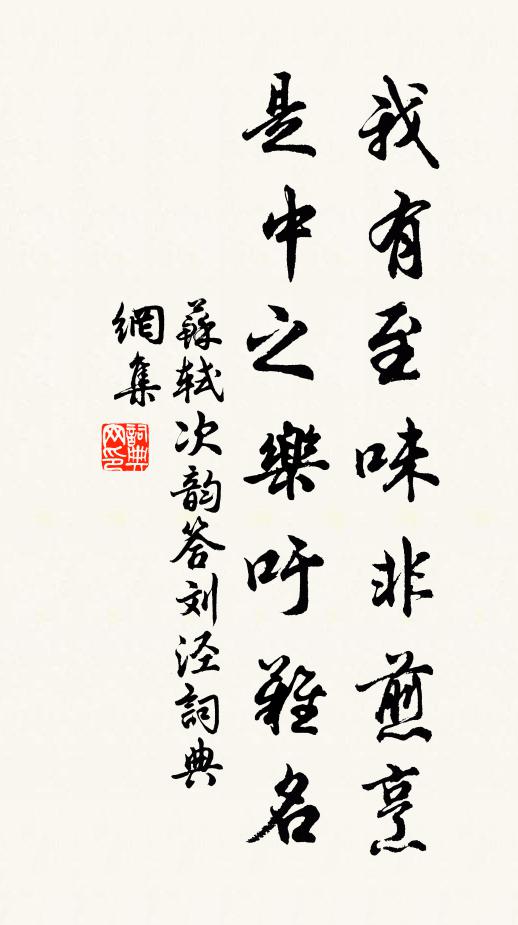 我有至味非煎烹
是中之樂吁難名
蘇軾次韵答刘泾詞典
網集
詞典網印